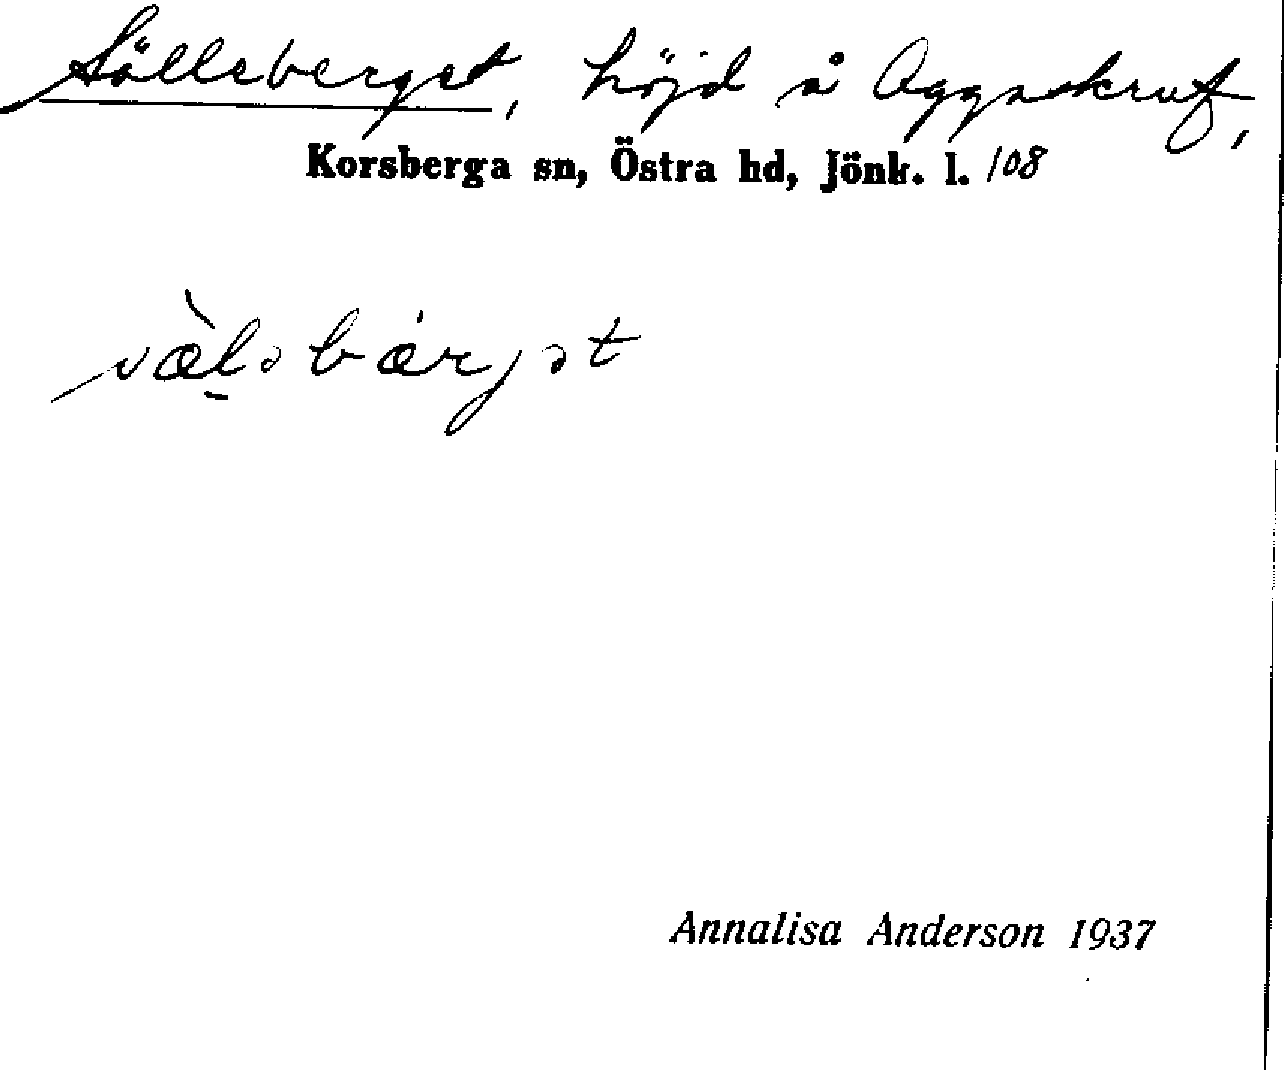 Sälleberget, höjd å Aggaskruf,
Korsberga sn, Östra hd, Jönk. l. 108
Annalisa Anderson 1937